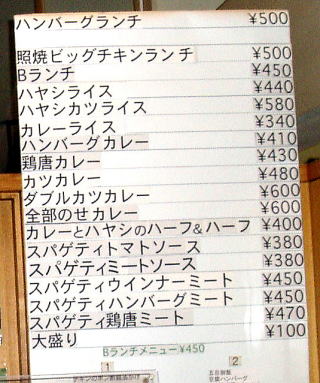 ハンバーグランチ ¥500
照焼ビッグチキンランチ ¥500
Bランチ ¥450
ハヤシライス ¥440
ハヤシカツライス ¥580
カレーライス ¥340
ハンバーグカレー ¥410
鶏唐カレー ¥430
カツカレー ¥480
ダブルカツカレー ¥600
全部のせカレー ¥600
カレーとハヤシのハーフ&ハーフ ¥400
スパゲティトマトソース ¥380
スパゲティミートソース ¥380
スパゲティウインナーミート ¥450
スパゲティハンバーグミート ¥450
スパゲティ鶏唐ミート ¥470
大盛り ¥100
Bランチメニュー¥450
1 2